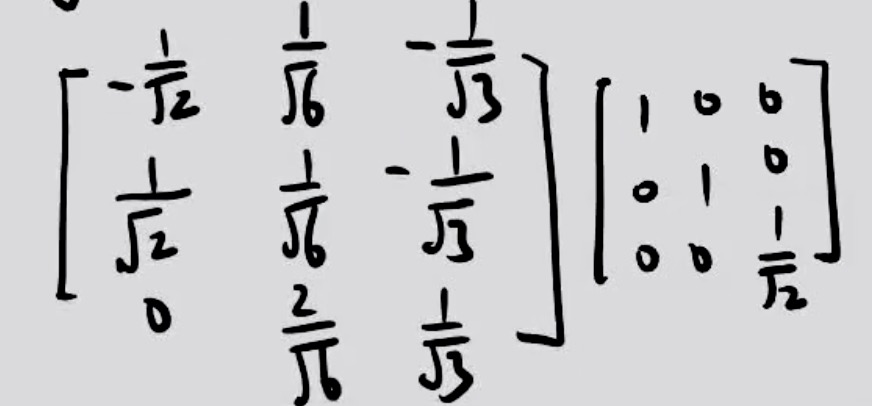 \begin{bmatrix} -\frac{1}{\sqrt{2}} & \frac{1}{\sqrt{6}} & -\frac{1}{\sqrt{3}} \\ \frac{1}{\sqrt{2}} & \frac{1}{\sqrt{6}} & -\frac{1}{\sqrt{3}} \\ 0 & \frac{2}{\sqrt{6}} & \frac{1}{\sqrt{3}} \end{bmatrix} \begin{bmatrix} 1 & 0 & 0 \\ 0 & 1 & 0 \\ 0 & 0 & \frac{1}{\sqrt{2}} \end{bmatrix}